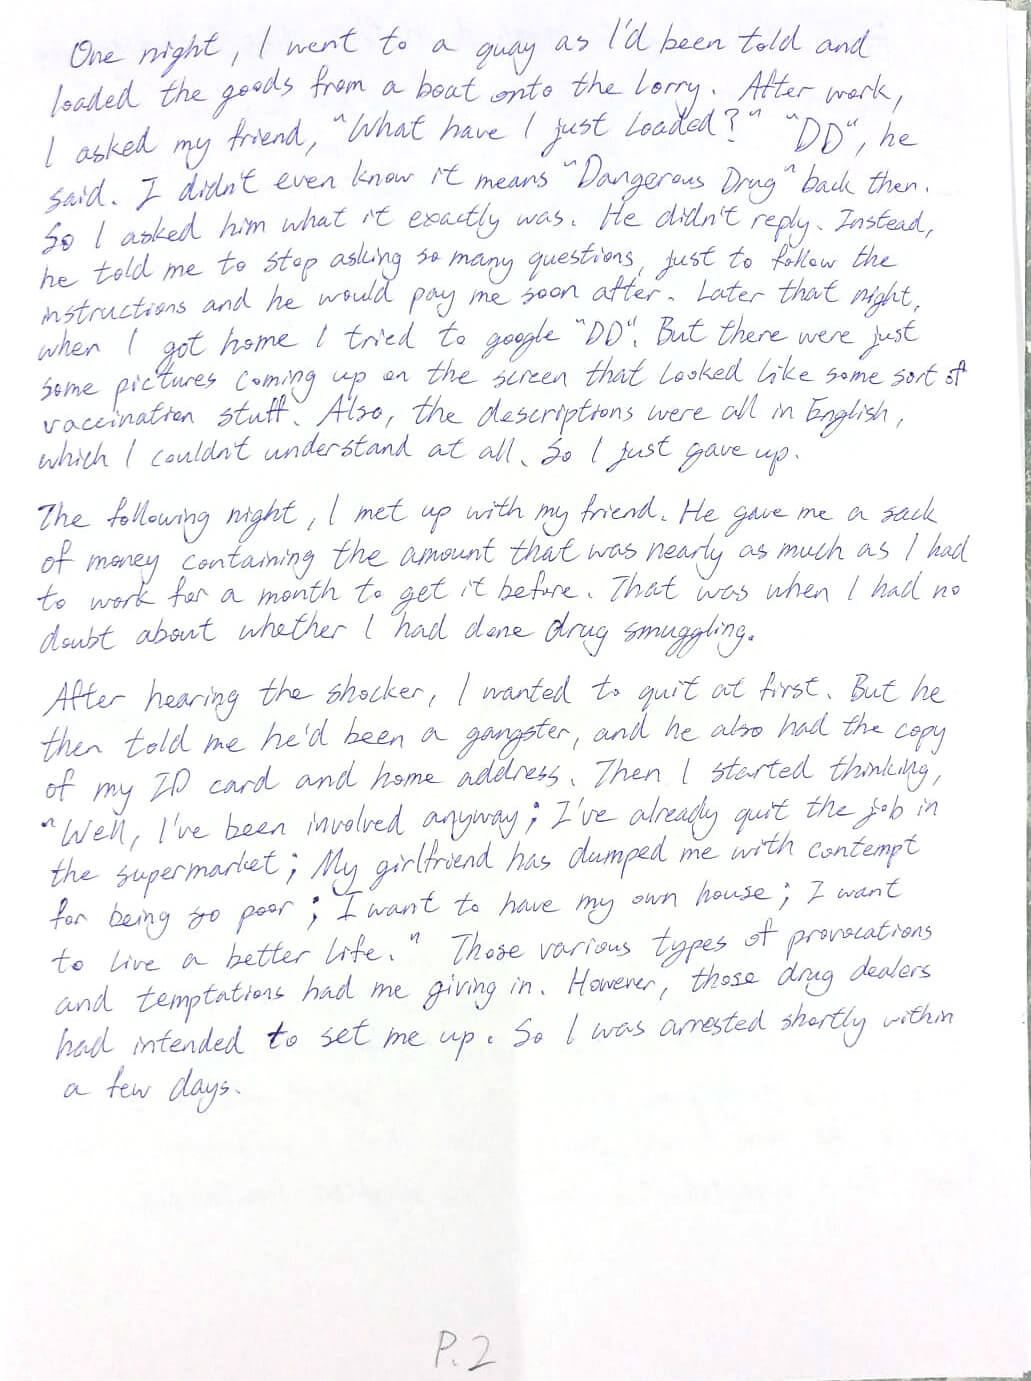 One night, I went to a quay as I'd been told and
loaded the goods from a boat onto the lorry. After work,
I asked my friend, "What have I just loaded?" "DD", he
said. I didn't even know it means "Dangerous Drug" back then.
So I asked him what it exactly was. He didn't reply. Instead,
he told me to stop asking so many questions, just to follow the
instructions and he would pay me soon after. Later that night,
when I got home I tried to google "DD". But there were just
some pictures coming up on the screen that looked like some sort of
vaccination stuff. Also, the descriptions were all in English,
which I couldn't understand at all. So I just gave up.
The following night, I met up with my friend. He gave me a sack
of money containing the amount that was nearly as much as I had
to work for a month to get it before. That was when I had no
doubt about whether I had done drug smuggling.
After hearing the shocker, I wanted to quit at first. But he
then told me he'd been a gangster, and he also had the copy
of my ID card and home address. Then I started thinking,
"Well, I've been involved anyway; I've already quit the job in
the supermarket; My girlfriend has dumped me with contempt
for being so poor; I want to have my own house; I want
to live a better life." Those various types of provocations
and temptations had me giving in. However, those drug dealers
had intended to set me up. So I was arrested shortly within
a few days.
P.2